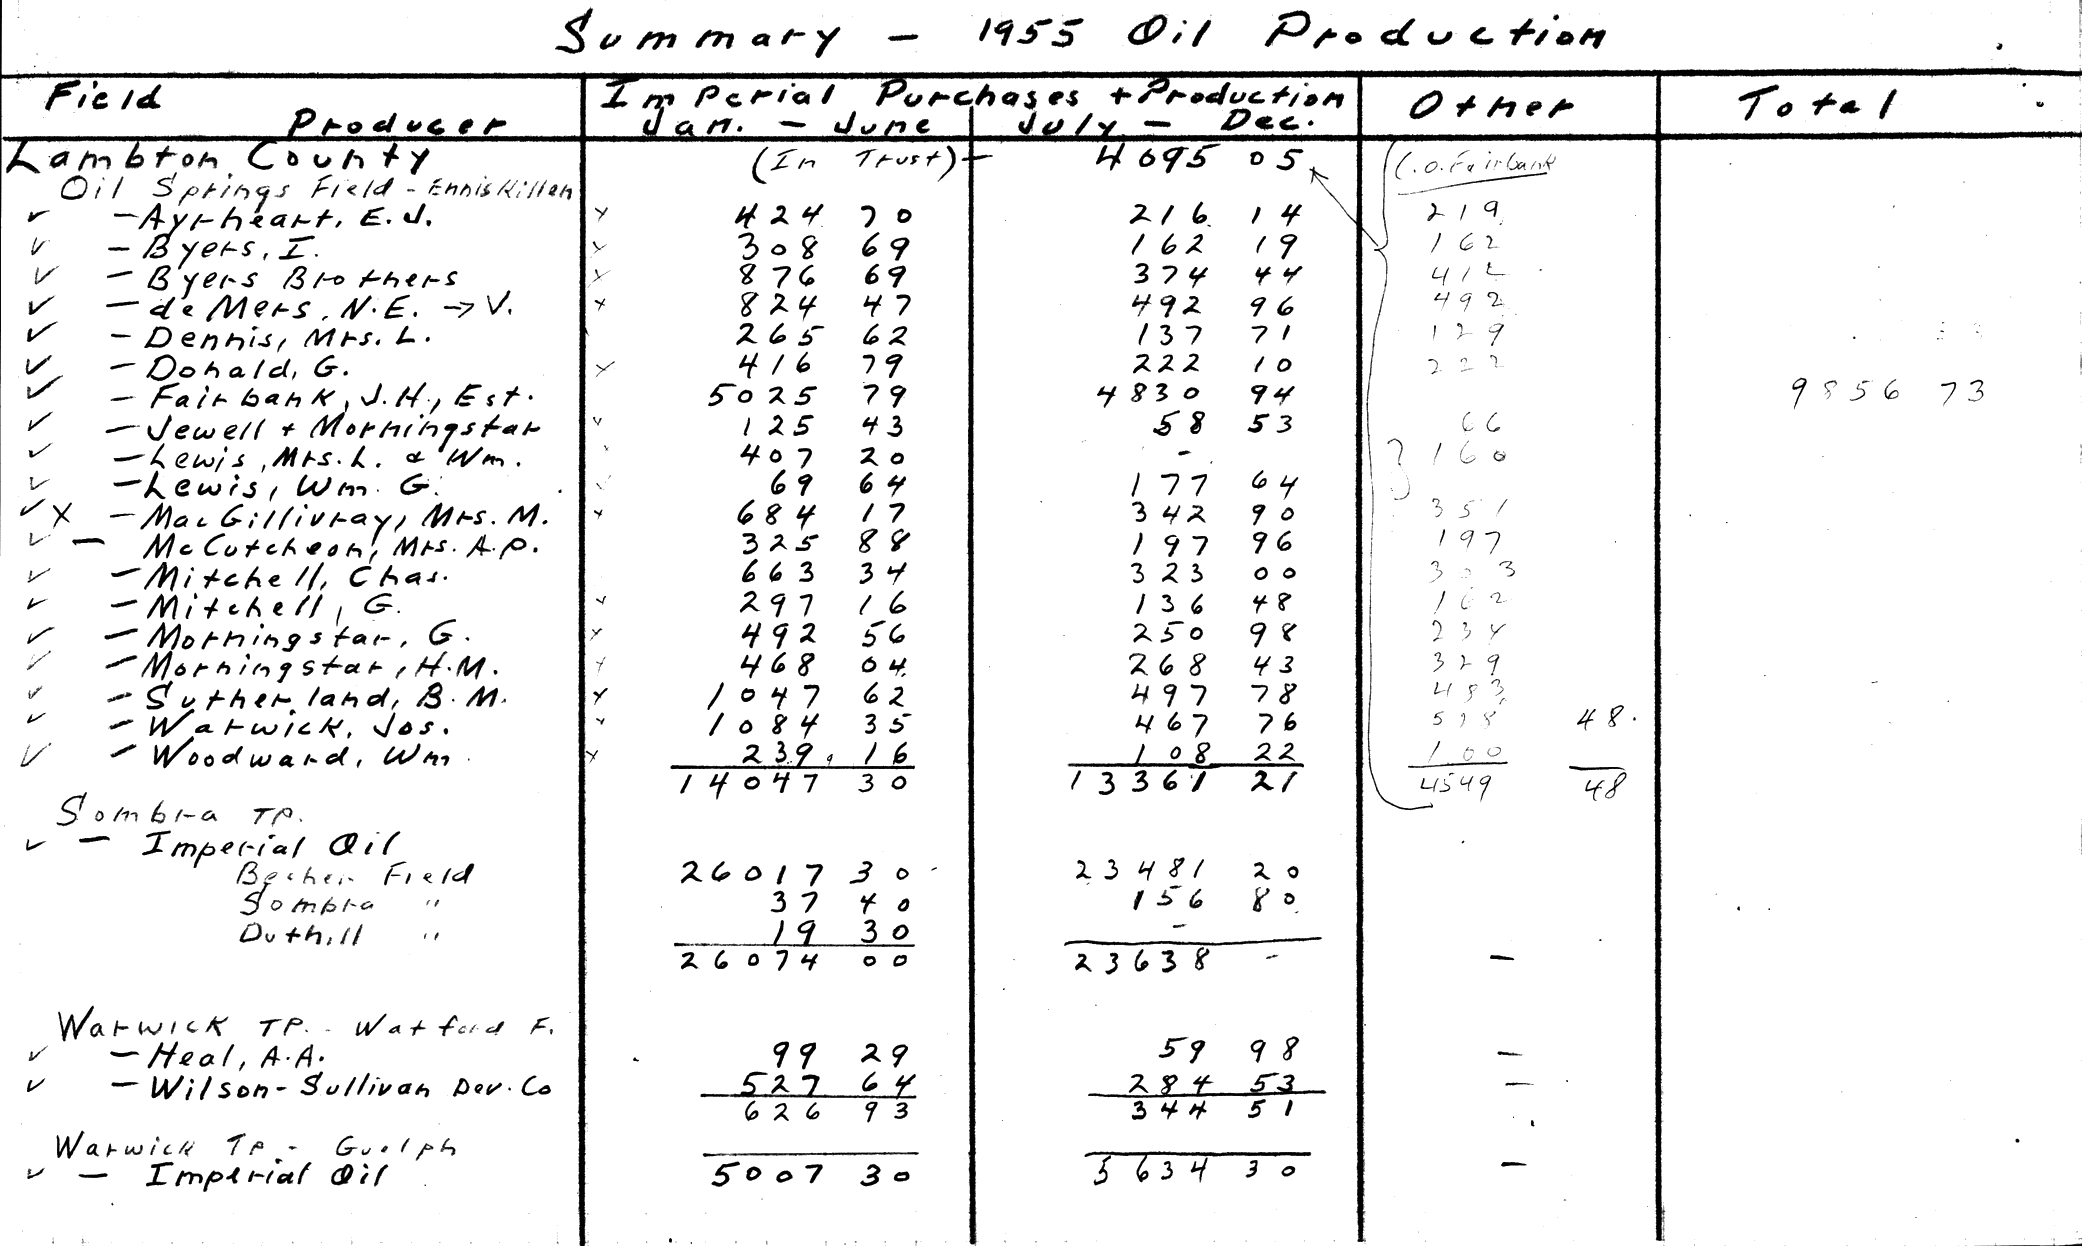 Summary - 1955 Oil Production
Field Producer Imperial Purchases + Production Jan. - June July - Dec. Other Total
Lambton County (In Trust) - 4095 05 C.O. Fairbank
Oil Springs Field - Enniskillen
✓ - Ayrheart, E.J. x 424 70 216 14 219
✓ - Byers, I. x 308 69 162 19 162
✓ - Byers Brothers x 876 69 374 44
✓ - de Mers, N.E. → V. x 824 47 492 96 492
✓ - Dennis, Mrs. L. 265 62 137 71 129
✓ - Donald, G. x 416 79 222 10 222
✓ - Fairbank, J.H., Est. 5025 79 4830 94 9856 73
✓ - Jewell + Morningstar x 125 43 58 53 66
✓ - Lewis, Mrs. L. & Wm. 407 20 - } 160
✓ - Lewis, Wm. G. 69 64 177 64
✓ X - MacGillivray, Mrs. M. x 684 17 342 90 351
✓ - McCutcheon, Mrs. A.P. 325 88 197 96 197
✓ - Mitchell, Chas. 663 34 323 00
✓ - Mitchell, G. x 297 16 136 48 162
✓ - Morningstar, G. x 492 56 250 98 234
✓ - Morningstar, H.M. x 468 04 268 43 329
✓ - Sutherland, B.M. x 1047 62 497 78 483
✓ - Warwick, Jos. x 1084 35 467 76 48.
✓ - Woodward, Wm x 239.16 108 22 100
14047 30 13361 21 4549 48
Sombra TP.
✓ - Imperial Oil
Becher Field 26017 30 23481 20
Sombra " 37 40 156 80
Duthill " 19 30 -
26074 00 23638 - -
Warwick TP. - Watford F.
✓ - Heal, A.A. 99 29 59 98 -
✓ - Wilson-Sullivan Dev. Co 527 64 284 53 -
626 93 344 51
Warwick TP. - Guelph
✓ - Imperial Oil 5007 30 5634 30 -